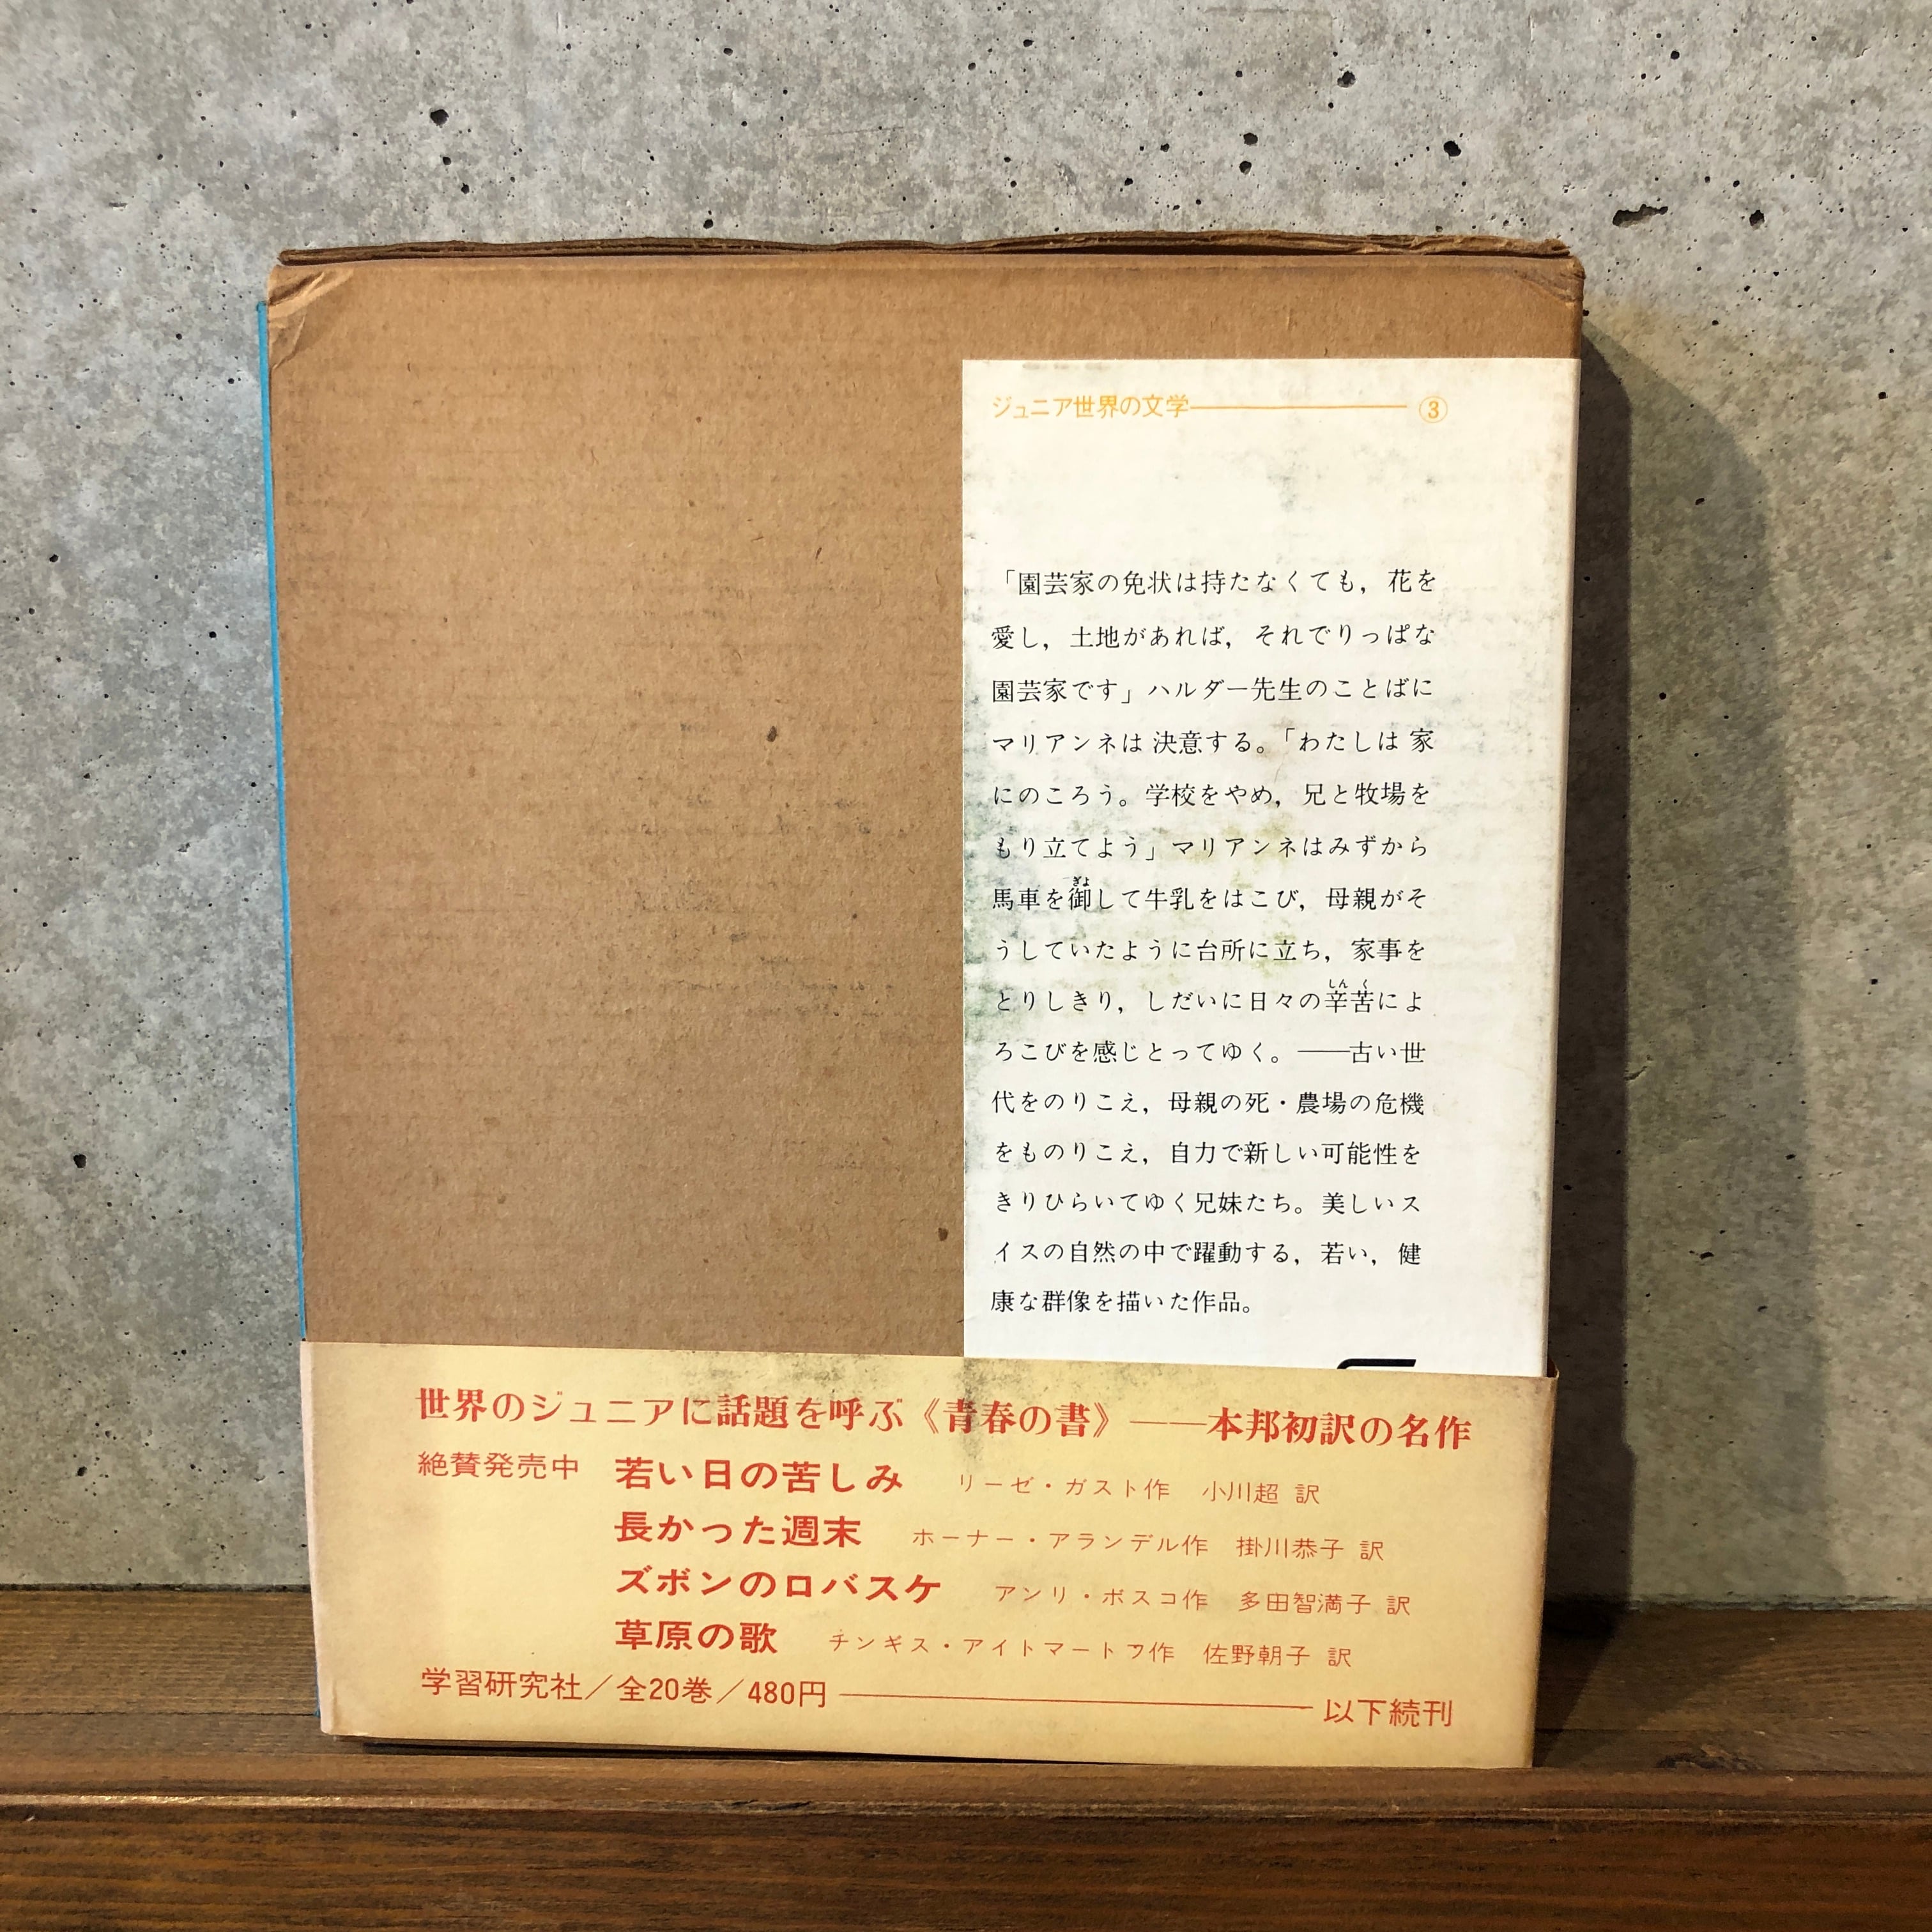 ジュニア世界の文学――――③
「園芸家の免状は持たなくても，花を
愛し，土地があれば，それでりっぱな
園芸家です」ハルダー先生のことばに
マリアンネは決意する。「わたしは家
にのころう。学校をやめ，兄と牧場を
もり立てよう」マリアンネはみずから
馬車を御ぎょして牛乳をはこび，母親がそ
うしていたように台所に立ち，家事を
とりしきり，しだいに日々の辛苦しんくによ
ろこびを感じとってゆく。――古い世
代をのりこえ，母親の死・農場の危機
をものりこえ，自力で新しい可能性を
きりひらいてゆく兄妹たち。美しいス
イスの自然の中で躍動する，若い，健
康な群像を描いた作品。
世界のジュニアに話題を呼ぶ《青春の書》――本邦初訳の名作
絶賛発売中 若い日の苦しみ リーゼ・ガスト作 小川超 訳
長かった週末 ホーナー・アランデル作 掛川恭子 訳
ズボンのロバスケ アンリ・ボスコ作 多田智満子 訳
草原の歌 チンギス・アイトマートフ作 佐野朝子 訳
学習研究社／全20巻／480円――――以下続刊